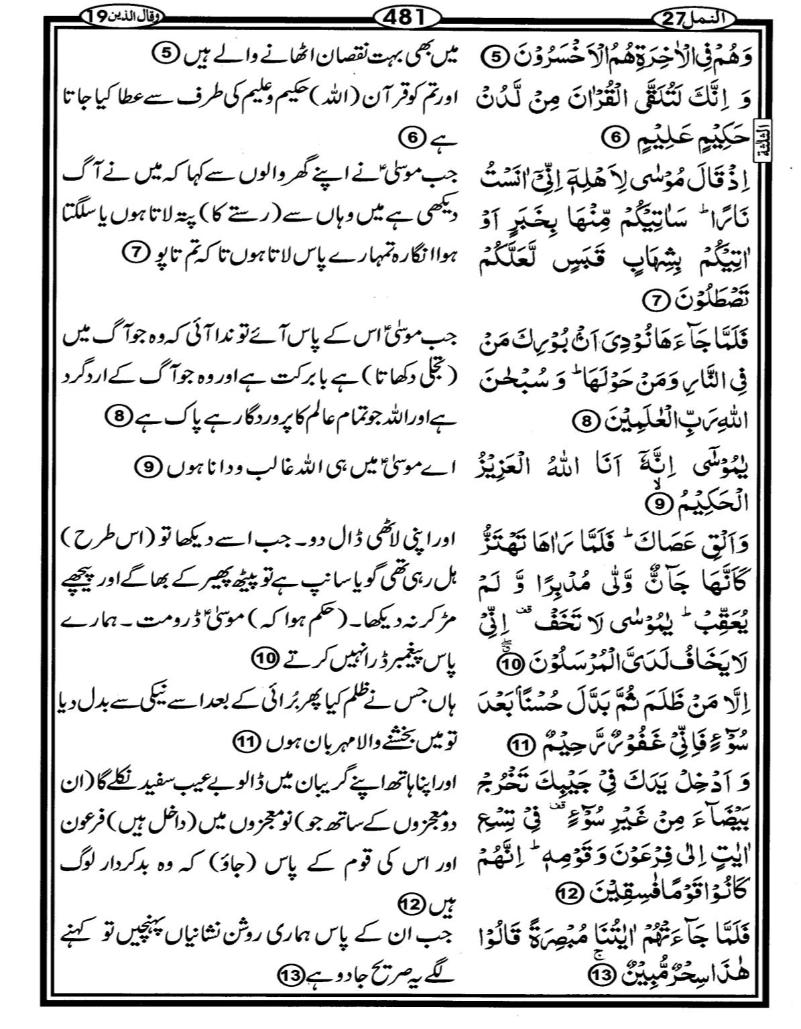 النمل 27
481
وقال الذین 19
الثلثة
وَهُمْ فِي الْاٰخِرَةِ هُمُ الْاَخْسَرُوْنَ ⑤
وَ اِنَّكَ لَتُلَقَّى الْقُرْاٰنَ مِنْ لَّدُنْ
حَكِيْمٍ عَلِيْمٍ ⑥
اِذْ قَالَ مُوْسٰى لِاَهْلِهٖٓ اِنِّيْٓ اٰنَسْتُ
نَارًا ؕ سَاٰتِيْكُمْ مِّنْهَا بِخَبَرٍ اَوْ
اٰتِيْكُمْ بِشِهَابٍ قَبَسٍ لَّعَلَّكُمْ
تَصْطَلُوْنَ ⑦
فَلَمَّا جَآءَهَا نُوْدِيَ اَنْۢ بُوْرِكَ مَنْ
فِي النَّارِ وَمَنْ حَوْلَهَا ؕ وَ سُبْحٰنَ
اللّٰهِ رَبِّ الْعٰلَمِيْنَ ⑧
يٰمُوْسٰٓى اِنَّهٗٓ اَنَا اللّٰهُ الْعَزِيْزُ
الْحَكِيْمُ ۙ ⑨
وَاَلْقِ عَصَاكَ ؕ فَلَمَّا رَاٰهَا تَهْتَزُّ
كَاَنَّهَا جَآنٌّ وَّلّٰى مُدْبِرًا وَّ لَمْ
يُعَقِّبْ ؕ يٰمُوْسٰى لَا تَخَفْ ۟ اِنِّيْ
لَا يَخَافُ لَدَيَّ الْمُرْسَلُوْنَ ⑩
اِلَّا مَنْ ظَلَمَ ثُمَّ بَدَّلَ حُسْنًۢا بَعْدَ
سُوْٓءٍ فَاِنِّيْ غَفُوْرٌ رَّحِيْمٌ ⑪
وَ اَدْخِلْ يَدَكَ فِيْ جَيْبِكَ تَخْرُجْ
بَيْضَآءَ مِنْ غَيْرِ سُوْٓءٍ ۟ فِيْ تِسْعِ
اٰيٰتٍ اِلٰى فِرْعَوْنَ وَقَوْمِهٖ ؕ اِنَّهُمْ
كَانُوْا قَوْمًا فٰسِقِيْنَ ⑫
فَلَمَّا جَآءَتْهُمْ اٰيٰتُنَا مُبْصِرَةً قَالُوْا
هٰذَا سِحْرٌ مُّبِيْنٌ ۚ ⑬
میں بھی بہت نقصان اٹھانے والے ہیں ⑤
اور تم کو قرآن (اللہ) حکیم و علیم کی طرف سے عطا کیا جاتا
ہے ⑥
جب موسیٰؑ نے اپنے گھر والوں سے کہا کہ میں نے آگ
دیکھی ہے میں وہاں سے (رستے کا) پتہ لاتا ہوں یا سلگتا
ہوا انگارہ تمہارے پاس لاتا ہوں تا کہ تم تاپو ⑦
جب موسیٰؑ اس کے پاس آئے تو ندا آئی کہ وہ جو آگ میں
(تجلی دکھاتا) ہے بابرکت ہے اور وہ جو آگ کے اردگرد
ہے اور اللہ جو تمام عالم کا پروردگار ہے پاک ہے ⑧
اے موسیٰؑ میں ہی اللہ غالب و دانا ہوں ⑨
اور اپنی لاٹھی ڈال دو۔ جب اسے دیکھا تو (اس طرح)
ہل رہی تھی گویا سانپ ہے تو پیٹھ پھیر کے بھاگے اور پیچھے
مڑ کر نہ دیکھا۔ (حکم ہوا کہ) موسیٰؑ ڈرو مت۔ ہمارے
پاس پیغمبر ڈرا نہیں کرتے ⑩
ہاں جس نے ظلم کیا پھر بُرائی کے بعد اسے نیکی سے بدل دیا
تو میں بخشنے والا مہربان ہوں ⑪
اور اپنا ہاتھ اپنے گریبان میں ڈالو بے عیب سفید نکلے گا (ان
دو معجزوں کے ساتھ جو) نو معجزوں میں (داخل ہیں) فرعون
اور اس کی قوم کے پاس (جاؤ) کہ وہ بدکردار لوگ
ہیں ⑫
جب ان کے پاس ہماری روشن نشانیاں پہنچیں تو کہنے
لگے یہ صریح جادو ہے ⑬